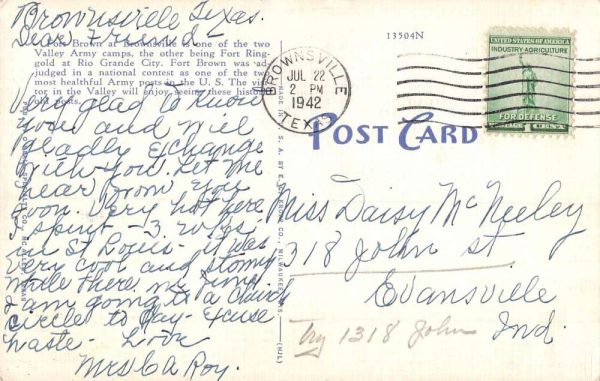 Brownsville Texas.
Dear Friend -
Fort Brown at Brownsville is one of the two
Valley Army camps, the other being Fort Ring-
gold at Rio Grande City. Fort Brown was ad-
judged in a national contest as one of the two
most healthful Army posts in the U. S. The visi-
tor in the Valley will enjoy seeing these historic
old posts.
Very glad to know
you and will
gladly exchange
view you. Let me
hear from you
soon. Very hot here
I spent - 3 wks
in St Louis - it was
very cool and stormy
while there
I am going to a church
circle to day - Excuse
haste - Love
Mrs C A Roy.
13504N
BROWNSVILLE
JUL 22
2 PM
1942
TEXAS
UNITED STATES OF AMERICA
INDUSTRY AGRICULTURE
FOR DEFENSE
POSTAGE 1 CENT
POST CARD
Miss Daisy McNeeley
318 John St
Evansville
Ind.
Try 1318 John